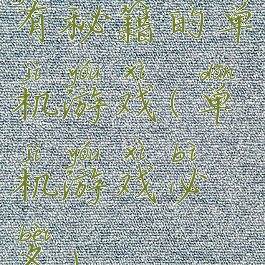 有秘籍的单
jī yóu xì dān
机游戏(单
jī yóu xì bì
机游戏必
bèi
备)